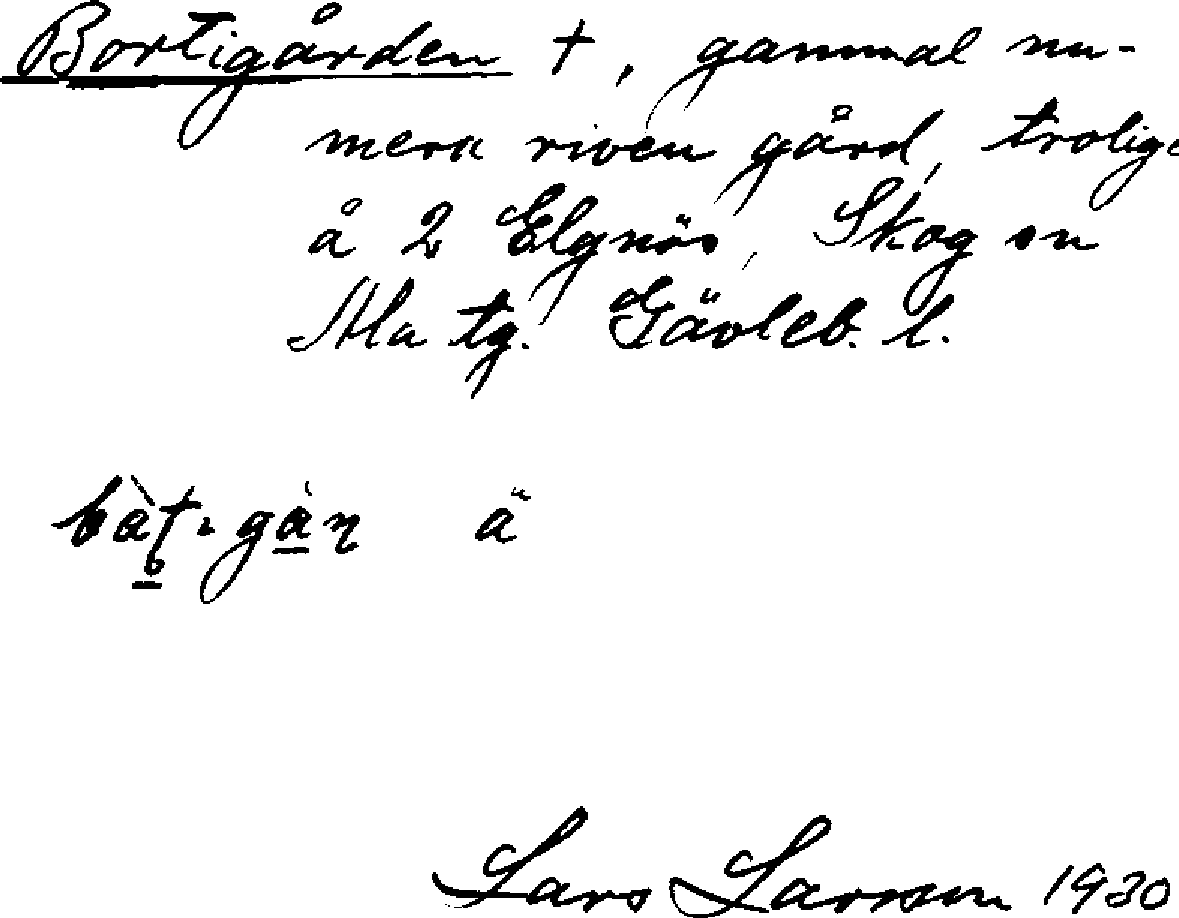 Bortigården †, gammal nu-
mera riven gård, trolige
å 2 Elgnäs, Skog sn
Ala tg. Gävleb. l.
ä
Lars Larsson 1930